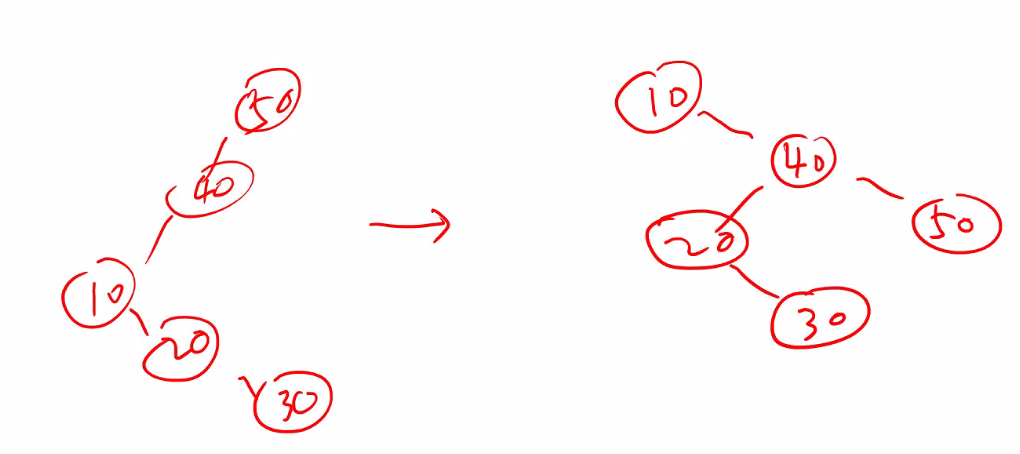 50
40
10
20
30
10
40
20
50
30